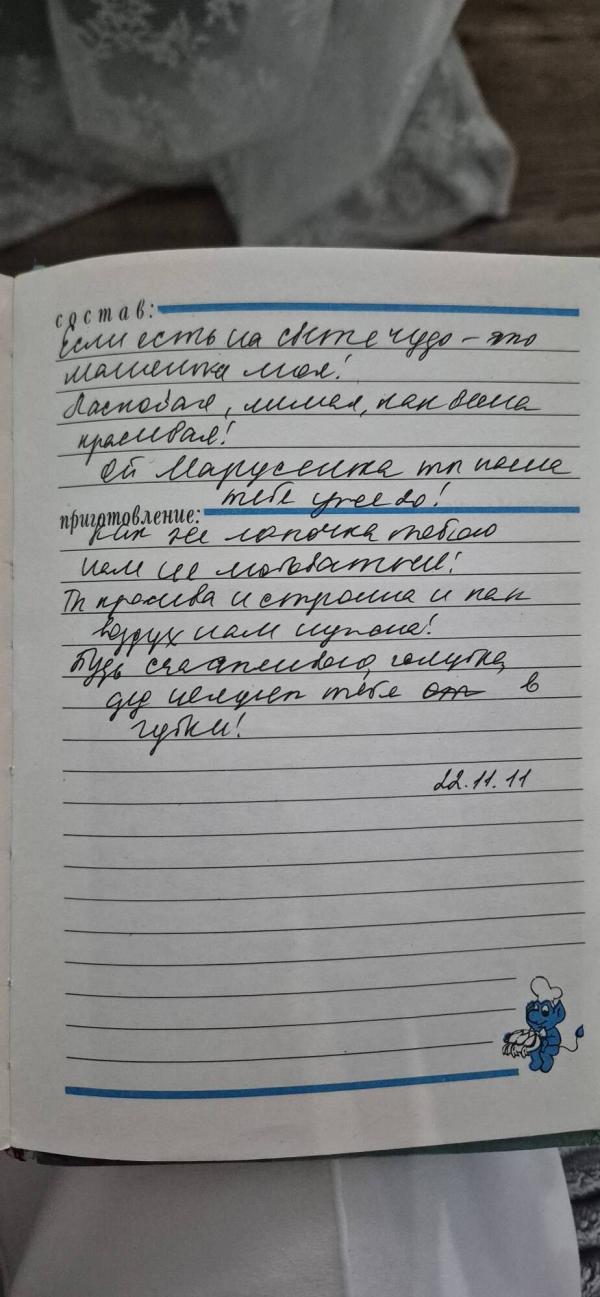 состав:
Если есть на свете чудо – это
машенька моя!
Ласковая, милая, как весна
красивая!
Ой Марусенька ты наша
тебе уже 20!
приготовление:
Как же лапочка тобою
нам не любоваться!
Ты красива и стройна и как
воздух нам нужна!
Будь счастлива, голубка,
дед целует тебя в
губки!
22.11.11